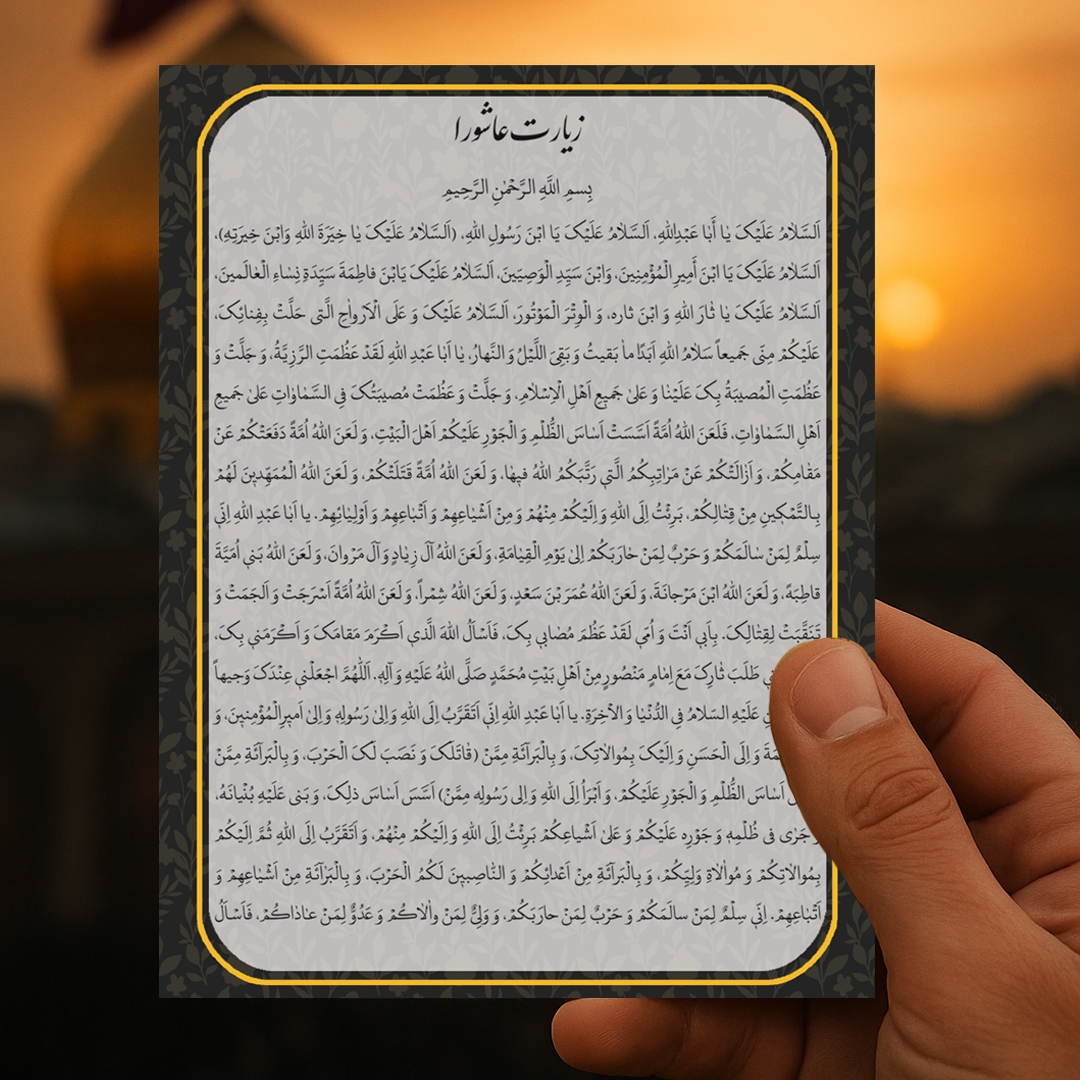 زیارت عاشورا
بِسمِ اللَّهِ الرَّحْمٰنِ الرَّحِیمِ
اَلسَّلامُ عَلَیْکَ یٰا أَبٰا عَبْدِاللهِ، اَلسَّلٰامُ عَلَیْکَ یَا ابْنَ رَسُولِ اللهِ، (اَلسَّلامُ عَلَیْکَ یٰا خِیَرَةَ اللهِ وَابْنَ خِیَرَتِهِ)،
اَلسَّلامُ عَلَیْکَ یَا ابْنَ أَمیرِ الْمُؤْمِنینَ، وَابْنَ سَیِّدِ الْوَصِیّینَ، اَلسَّلٰامُ عَلَیْکَ یَابْنَ فاطِمَةَ سَیِّدَةِ نِسٰاءِ الْعٰالَمینَ،
اَلسَّلٰامُ عَلَیْکَ یٰا ثٰارَ اللهِ وَ ابْنَ ثارِه، وَ الْوِتْرَ الْمَوْتُورَ، اَلسَّلٰامُ عَلَیْکَ وَ عَلَی الْاَرواٰحِ الَّتی حَلَّتْ بِفِنائِکَ،
عَلَیْکُمْ مِنّی جَمیعاً سَلٰامُ اللهِ اَبَدًا ماٰ بَقیتُ وَ بَقِیَ اللَّیْلُ وَ النَّهارُ، یٰا اَبٰا عَبْدِ اللهِ لَقَدْ عَظُمَتِ الرَّزِیَّةُ، وَ جَلَّتْ وَ
عَظُمَتِ الْمُصیبَةُ بِکَ عَلَیْنٰا وَ عَلیٰ جَمیعِ اَهْلِ الْاِسْلامِ، وَ جَلَّتْ وَ عَظُمَتْ مُصیبَتُکَ فِی السَّمٰاوٰاتِ عَلیٰ جَمیعِ
اَهْلِ السَّمٰاوٰاتِ، فَلَعَنَ اللهُ اُمَّةً اَسَّسَتْ اَسٰاسَ الظُّلْمِ وَ الْجَوْرِ عَلَیْکُمْ اَهْلَ الْبَیْتِ، وَ لَعَنَ اللهُ اُمَّةً دَفَعَتْکُمْ عَنْ
مَقٰامِکُمْ، وَ اَزٰالَتْکُمْ عَنْ مَرٰاتِبِکُمُ الَّتی رَتَّبَکُمُ اللهُ فیهٰا، وَ لَعَنَ اللهُ اُمَّةً قَتَلَتْکُمْ، وَ لَعَنَ اللهُ الْمُمَهِّدینَ لَهُمْ
بِالتَّمْکینِ مِنْ قِتٰالِکُمْ، بَرِئْتُ اِلَی اللهِ وَ اِلَیْکُمْ مِنْهُمْ وَ مِنْ اَشْیٰاعِهِمْ وَ اَتْبٰاعِهِمْ وَ اَوْلِیٰائِهِمْ. یا اَبٰا عَبْدِ اللهِ اِنّی
سِلْمٌ لِمَنْ سٰالَمَکُمْ وَ حَرْبٌ لِمَنْ حٰارَبَکُمْ اِلیٰ یَوْمِ الْقِیٰامَةِ، وَ لَعَنَ اللهُ آلَ زِیٰادٍ وَ آلَ مَرْوانَ، وَ لَعَنَ اللهُ بَنی اُمَیَّةَ
قاطِبَةً، وَ لَعَنَ اللهُ ابْنَ مَرْجانَةَ، وَ لَعَنَ اللهُ عُمَرَ بْنَ سَعْدٍ، وَ لَعَنَ اللهُ شِمْراً، وَ لَعَنَ اللهُ اُمَّةً اَسْرَجَتْ وَ اَلْجَمَتْ وَ
تَنَقَّبَتْ لِقِتٰالِکَ. بِاَبی اَنْتَ وَ اُمّی لَقَدْ عَظُمَ مُصٰابی بِکَ، فَاَسْاَلُ اللهَ الَّذی اَکْرَمَ مَقامَکَ وَ اَکْرَمَنی بِکَ،
طَلَبَ ثٰارِکَ مَعَ اِمٰامٍ مَنْصُورٍ مِنْ اَهْلِ بَیْتِ مُحَمَّدٍ صَلَّی اللهُ عَلَیْهِ وَ آلِهِ. اَللّٰهُمَّ اجْعَلْنی عِنْدَکَ وَجیهاً
عَلَیْهِ السَلامُ فِی الدُّنْیٰا وَ الْآخِرَةِ. یا اَبٰا عَبْدِ اللهِ اِنّی اَتَقَرَّبُ اِلَی اللهِ وَ اِلیٰ رَسُولِهِ وَ اِلیٰ اَمیرِ الْمُؤْمِنینَ، وَ
وَ اِلَی الْحَسَنِ وَ اِلَیْکَ بِمُوالاتِکَ، وَ بِالْبَرآئَةِ مِمَّنْ (قٰاتَلَکَ وَ نَصَبَ لَکَ الْحَرْبَ، وَ بِالْبَرآئَةِ مِمَّنْ
اَسٰاسَ الظُّلْمِ وَ الْجَوْرِ عَلَیْکُمْ، وَ اَبْرَأُ اِلَی اللهِ وَ اِلی رَسُولِهِ مِمَّنْ) اَسَّسَ اَسٰاسَ ذٰلِکَ، وَ بَنی عَلَیْهِ بُنْیٰانَهُ،
جَرٰی فی ظُلْمِهِ وَ جَوْرِهِ عَلَیْکُمْ وَ عَلیٰ اَشْیاعِکُمْ بَرِئْتُ اِلَی اللهِ وَ اِلَیْکُمْ مِنْهُمْ، وَ اَتَقَرَّبُ اِلَی اللهِ ثُمَّ اِلَیْکُمْ
بِمُوالاتِکُمْ وَ مُوالٰاةِ وَلِیِّکُمْ، وَ بِالْبَرآئَةِ مِنْ اَعْدائِکُمْ وَ النّٰاصِبینَ لَکُمُ الْحَرْبَ، وَ بِالْبَرٰآئَةِ مِنْ اَشْیٰاعِهِمْ وَ
اَتْبٰاعِهِمْ. اِنّی سِلْمٌ لِمَنْ سالَمَکُمْ وَ حَرْبٌ لِمَنْ حارَبَکُمْ، وَ وَلِیٌّ لِمَنْ والٰاکُمْ وَ عَدُوٌّ لِمَنْ عٰاداٰکُمْ، فَاَسْاَلُ